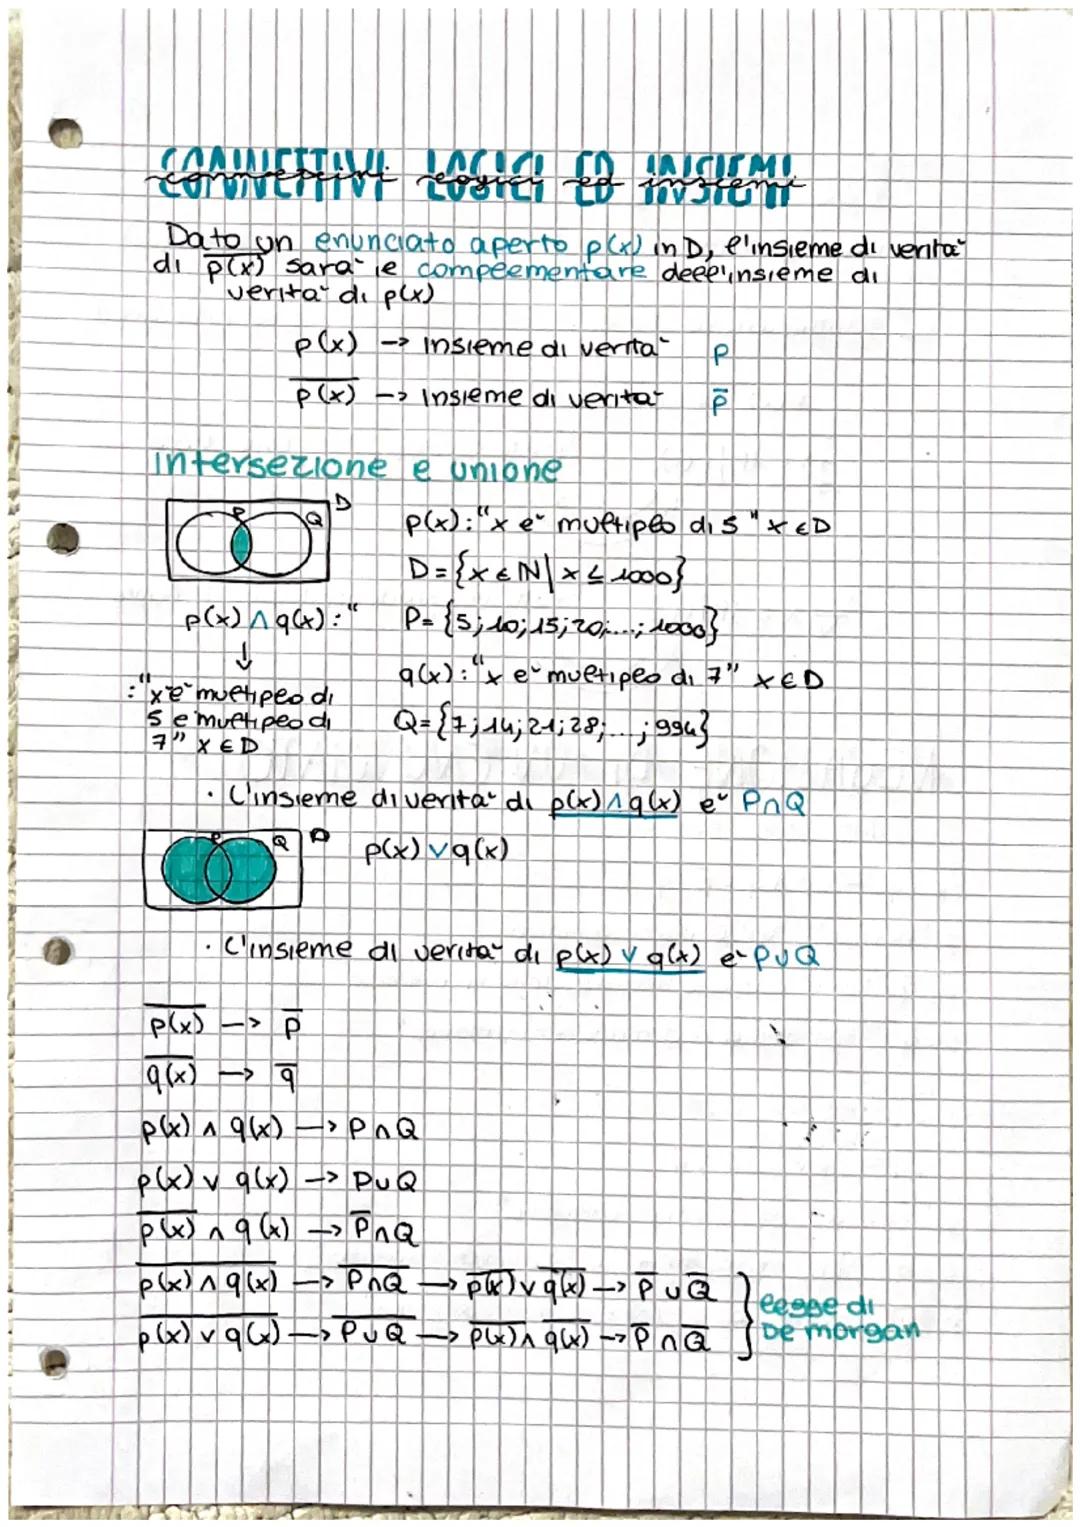 CONNETTIVI LOGICI ED INSIEMI
connettivi logici ed insiemi
Dato un enunciato aperto p(x) in D, l'insieme di verità
di p̅(̅x̅)̅ sarà il complementare dell'insieme di
verità di p(x)
p(x) -> insieme di verità P
p̅(̅x̅)̅ -> insieme di verità p̅
intersezione e unione
P Q D
p(x): "x è multiplo di 5" x ∈ D
D = {x ∈ N | x ≤ 1000}
p(x) ∧ q(x): "
P = {5; 10; 15; 20; ...; 1000}
↓
q(x): "x è multiplo di 7" x ∈ D
: "x è multiplo di
5 e multiplo di
7" x ∈ D
Q = {7; 14; 21; 28; ...; 994}
· L'insieme di verità di p(x) ∧ q(x) è P∩Q
P Q D
p(x) ∨ q(x)
· L'insieme di verità di p(x) ∨ q(x) è P∪Q
p̅(̅x̅)̅ -> p̅
q̅(̅x̅)̅ -> q̅
p(x) ∧ q(x) -> P∩Q
p(x) ∨ q(x) -> P∪Q
p̅(̅x̅)̅ ∧ q(x) -> P̅∩Q
p̅(̅x̅)̅ ̅∧̅ ̅q̅(̅x̅)̅ -> P̅∩̅Q̅ -> p̅(̅x̅)̅ ∨ q̅(̅x̅)̅ -> P̅ ∪ Q̅
p̅(̅x̅)̅ ̅∨̅ ̅q̅(̅x̅)̅ -> P̅∪̅Q̅ -> p̅(̅x̅)̅ ∧ q̅(̅x̅)̅ -> P̅ ∩ Q̅
} legge di
De morgan